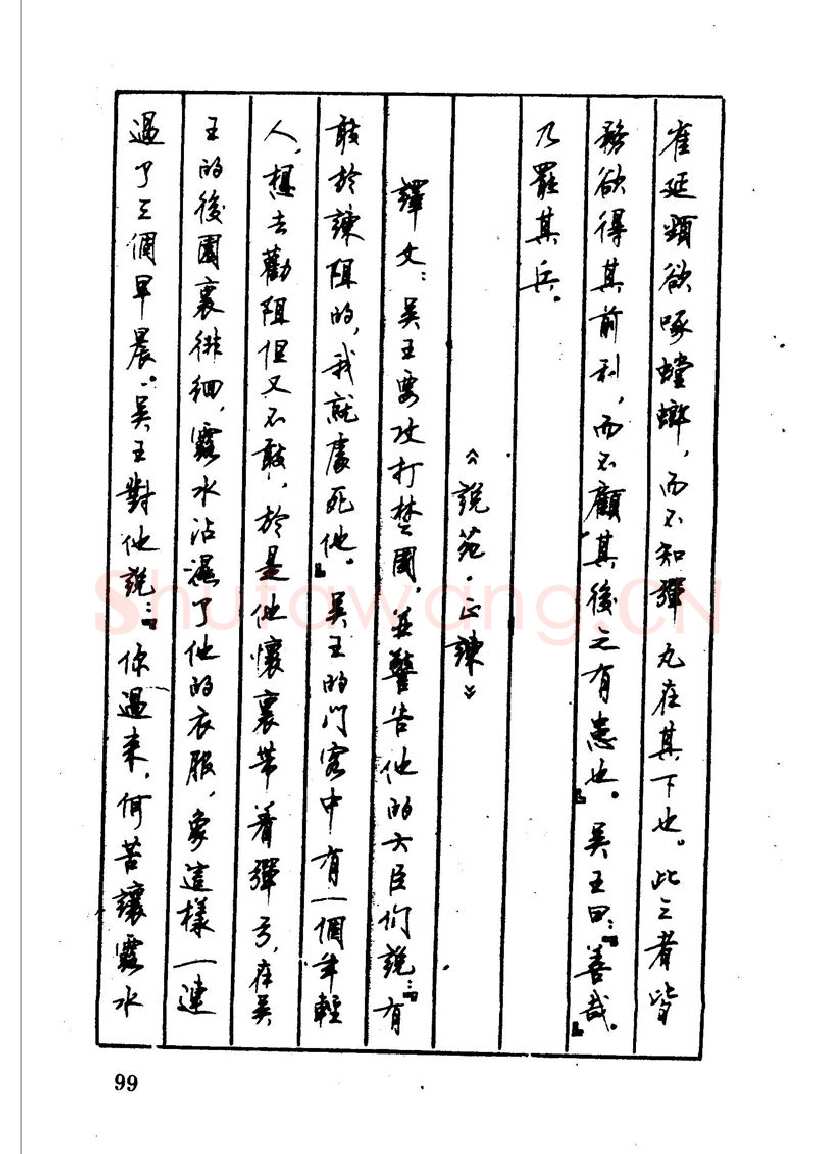 雀延頸欲啄螳螂，而不知彈丸在其下也。此三者皆
務欲得其前利，而不顧其後之有患也。』吳王曰：『善哉。』
乃罷其兵。
《說苑·正諫》
譯文：吳王要攻打楚國，並警告他的大臣們說：『有
敢於諫阻的，我就處死他。』吳王的門客中有一個年輕
人，想去勸阻但又不敢，於是他懷裏带着彈弓，在吳
王的後園裏徘徊，露水沾濕了他的衣服，象這樣一連
過了三個早晨。吳王對他說：『你過來，何苦讓露水
99
Shufawang.CN